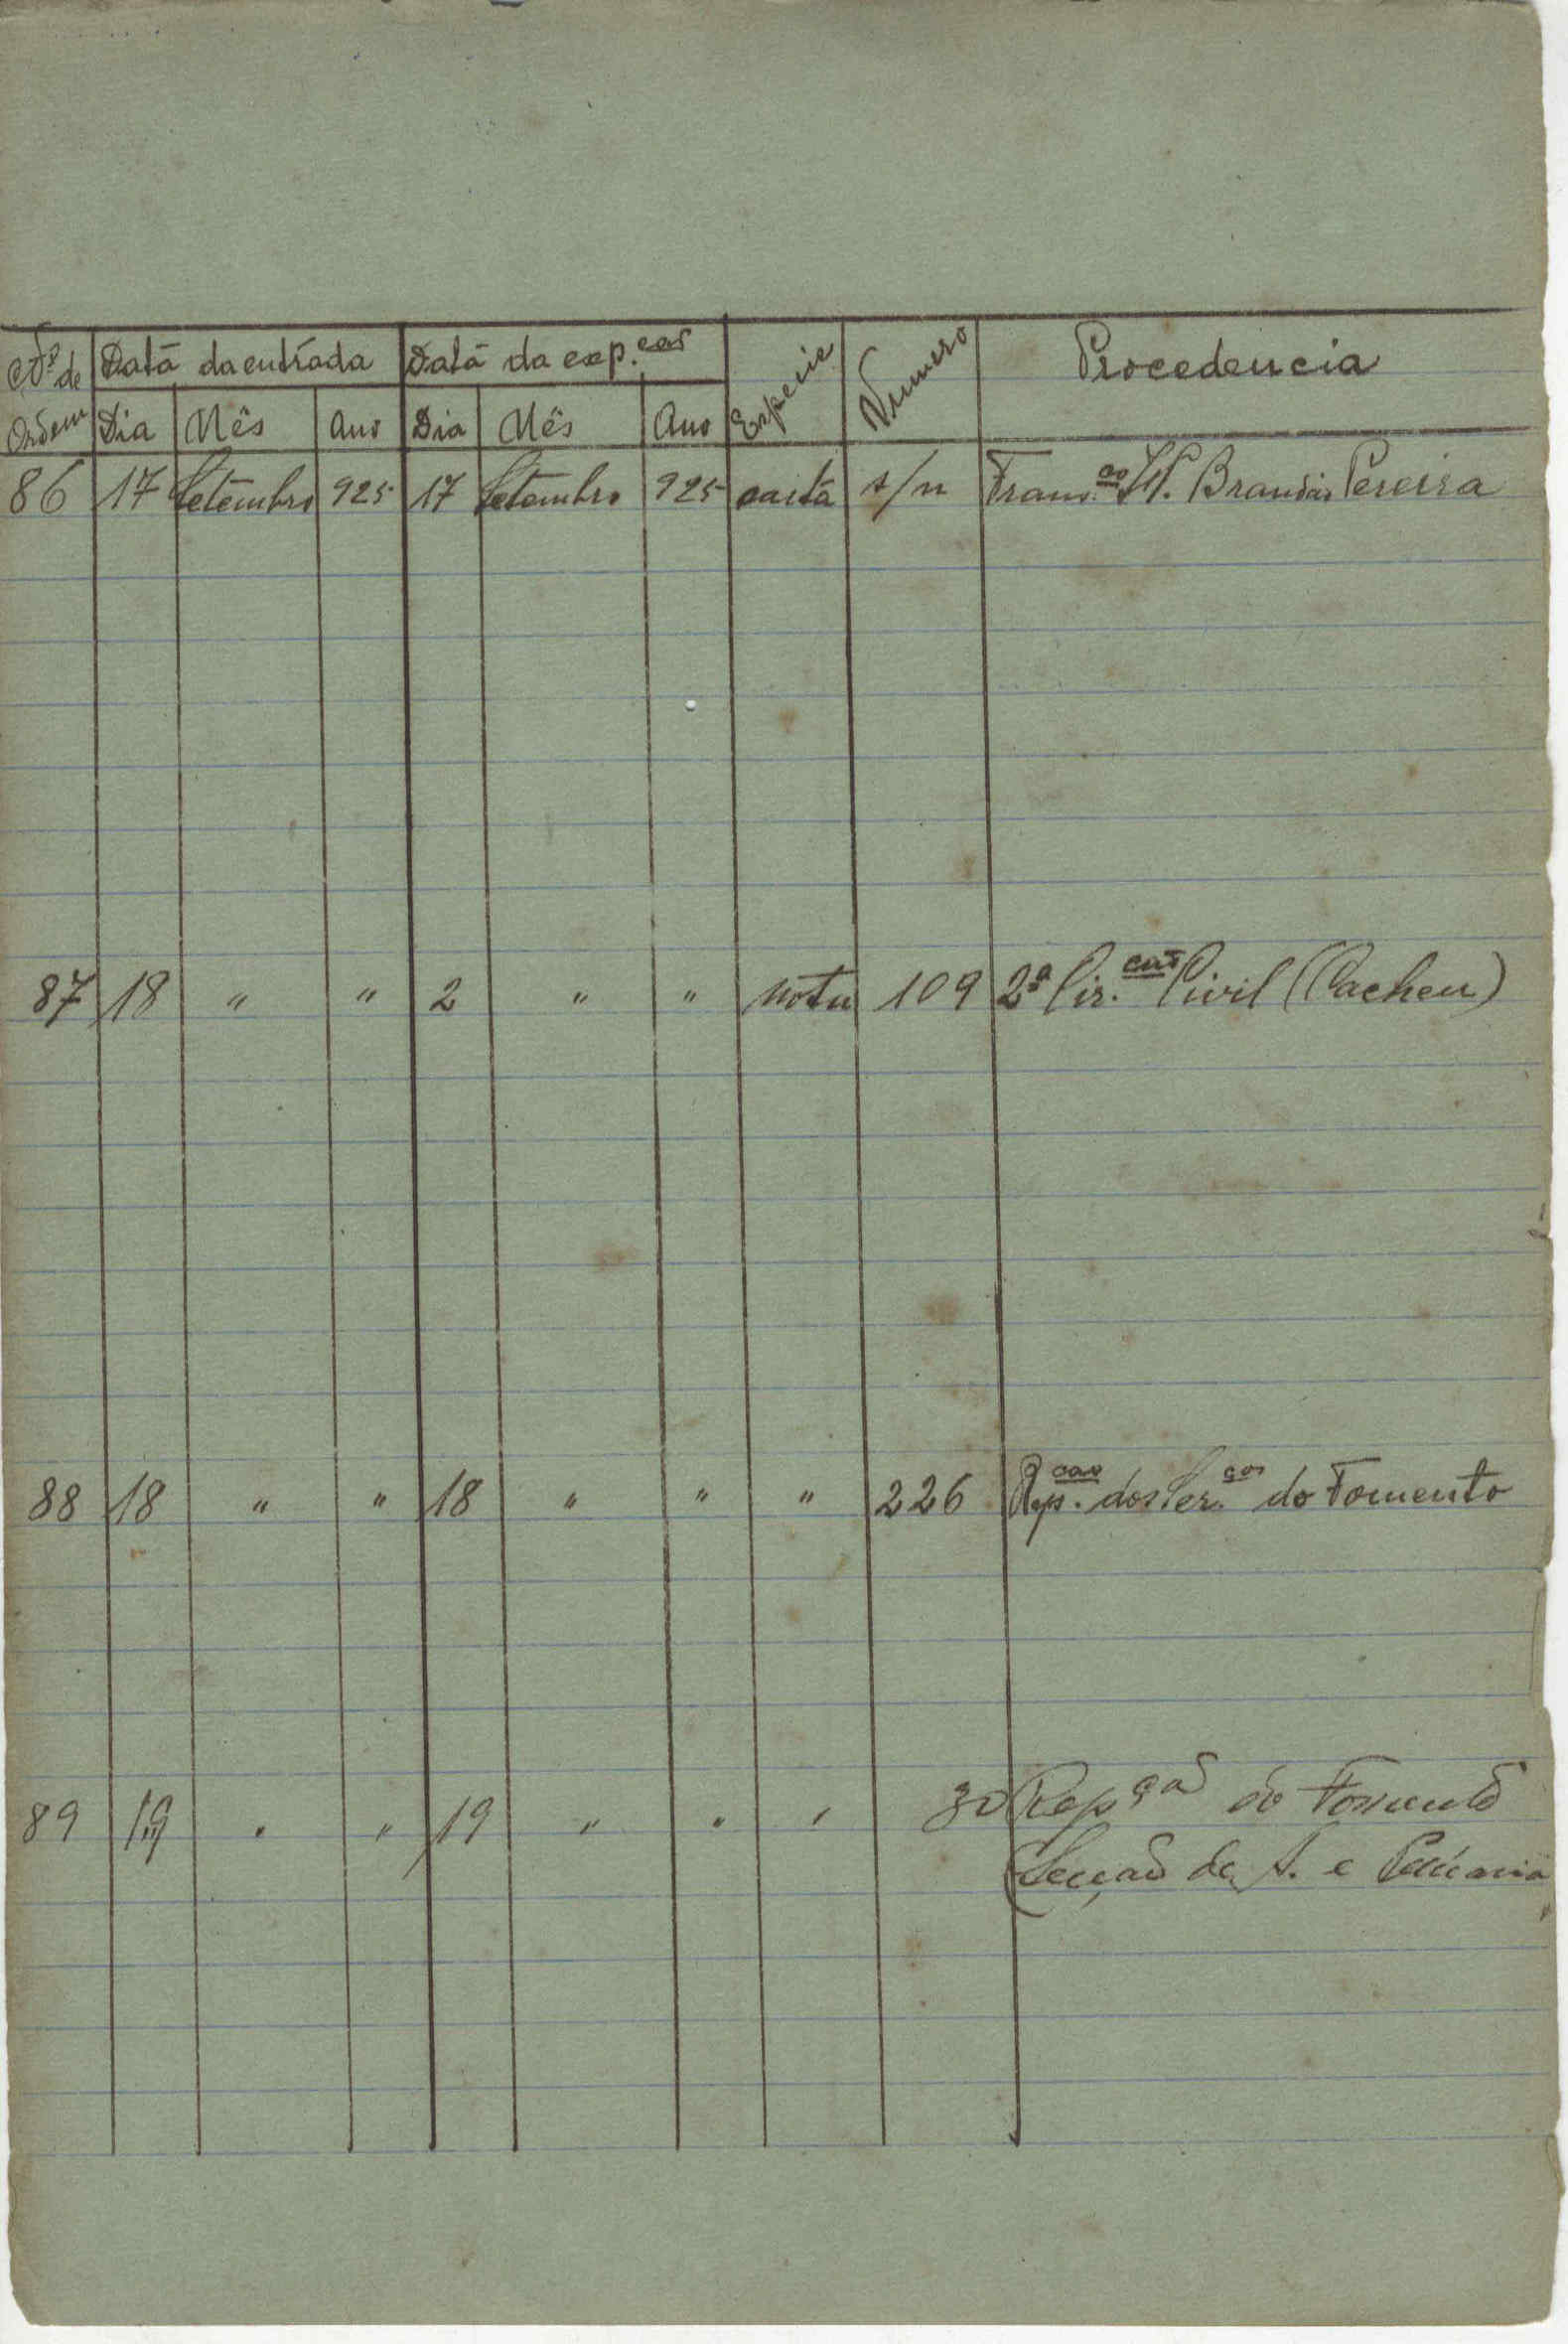 Nº de Data da entrada Data da exp.ção Especie Numero Procedencia
Ordem Dia Mês Ano Dia Mês Ano
86 17 Setembro 925 17 Setembro 925 carta s/n Franc.co Brandão Pereira
87 18 " " 2 " " nota 109 2ª Cir.cão Civil (Cacheu)
88 18 " " 18 " " " 226 Rep.cao dos Ser.ços do Fomento
89 19 " " 19 " " " 30 Repção do Fomento
(Secção de A. e Pecúaria